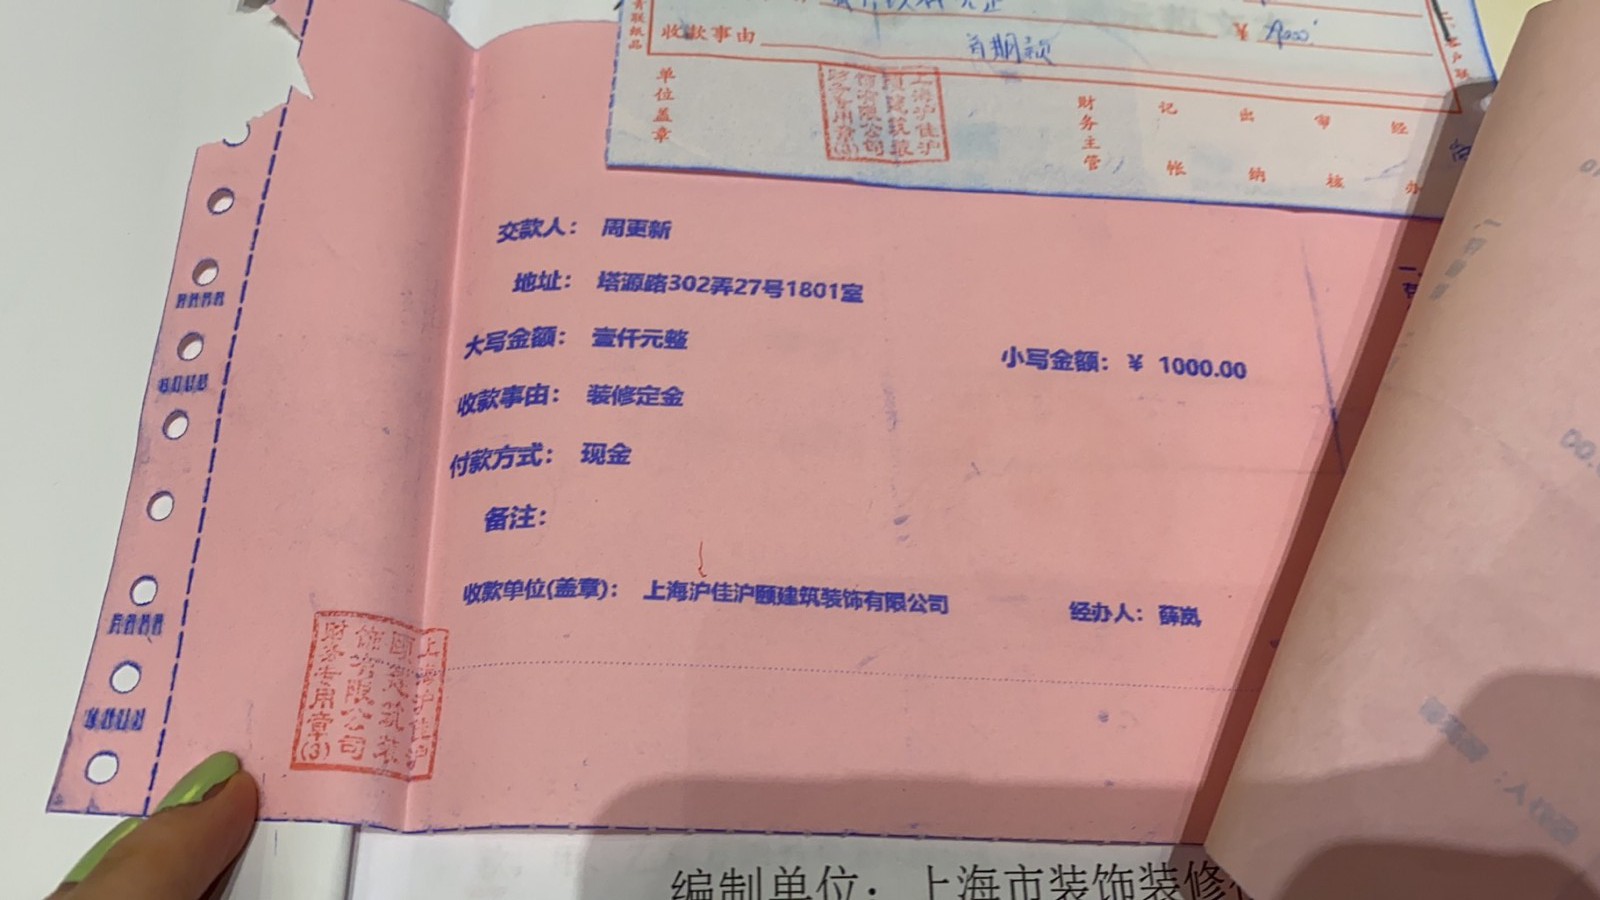 收款事由 首期款 ¥ 9000
单位盖章
上海沪佳沪
颐建筑装
饰有限公司
财务专用章(3)
财务主管 记帐 出纳 审核 经办
交款人: 周更新
地址: 塔源路302弄27号1801室
大写金额: 壹仟元整
小写金额: ¥ 1000.00
收款事由: 装修定金
付款方式: 现金
备注:
收款单位(盖章): 上海沪佳沪颐建筑装饰有限公司 经办人: 薛岚
上海沪佳沪
颐建筑装
饰有限公司
财务专用章(3)
编制单位: 上海市装饰装修